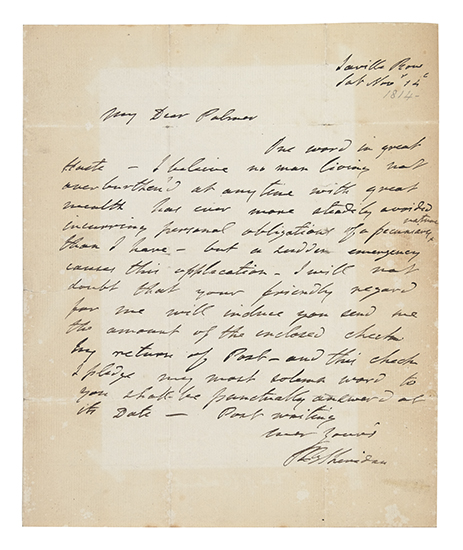 Saville Row
Sat Novr 12
1814-
My Dear Palmer
One word in great
Haste – I believe no man living not
overburthen'd at any time with great
wealth has ever more steadily avoided
incurring personal obligations of a pecuniary nature
than I have – but a sudden emergency
causes this application – I will not
doubt that your friendly regard
for me will induce you send me
the amount of the enclosed check
by return of Post – and this check
I pledge my most solemn word to
you shall be punctually answered at
its Date – Post waiting
ever Yours
RB Sheridan